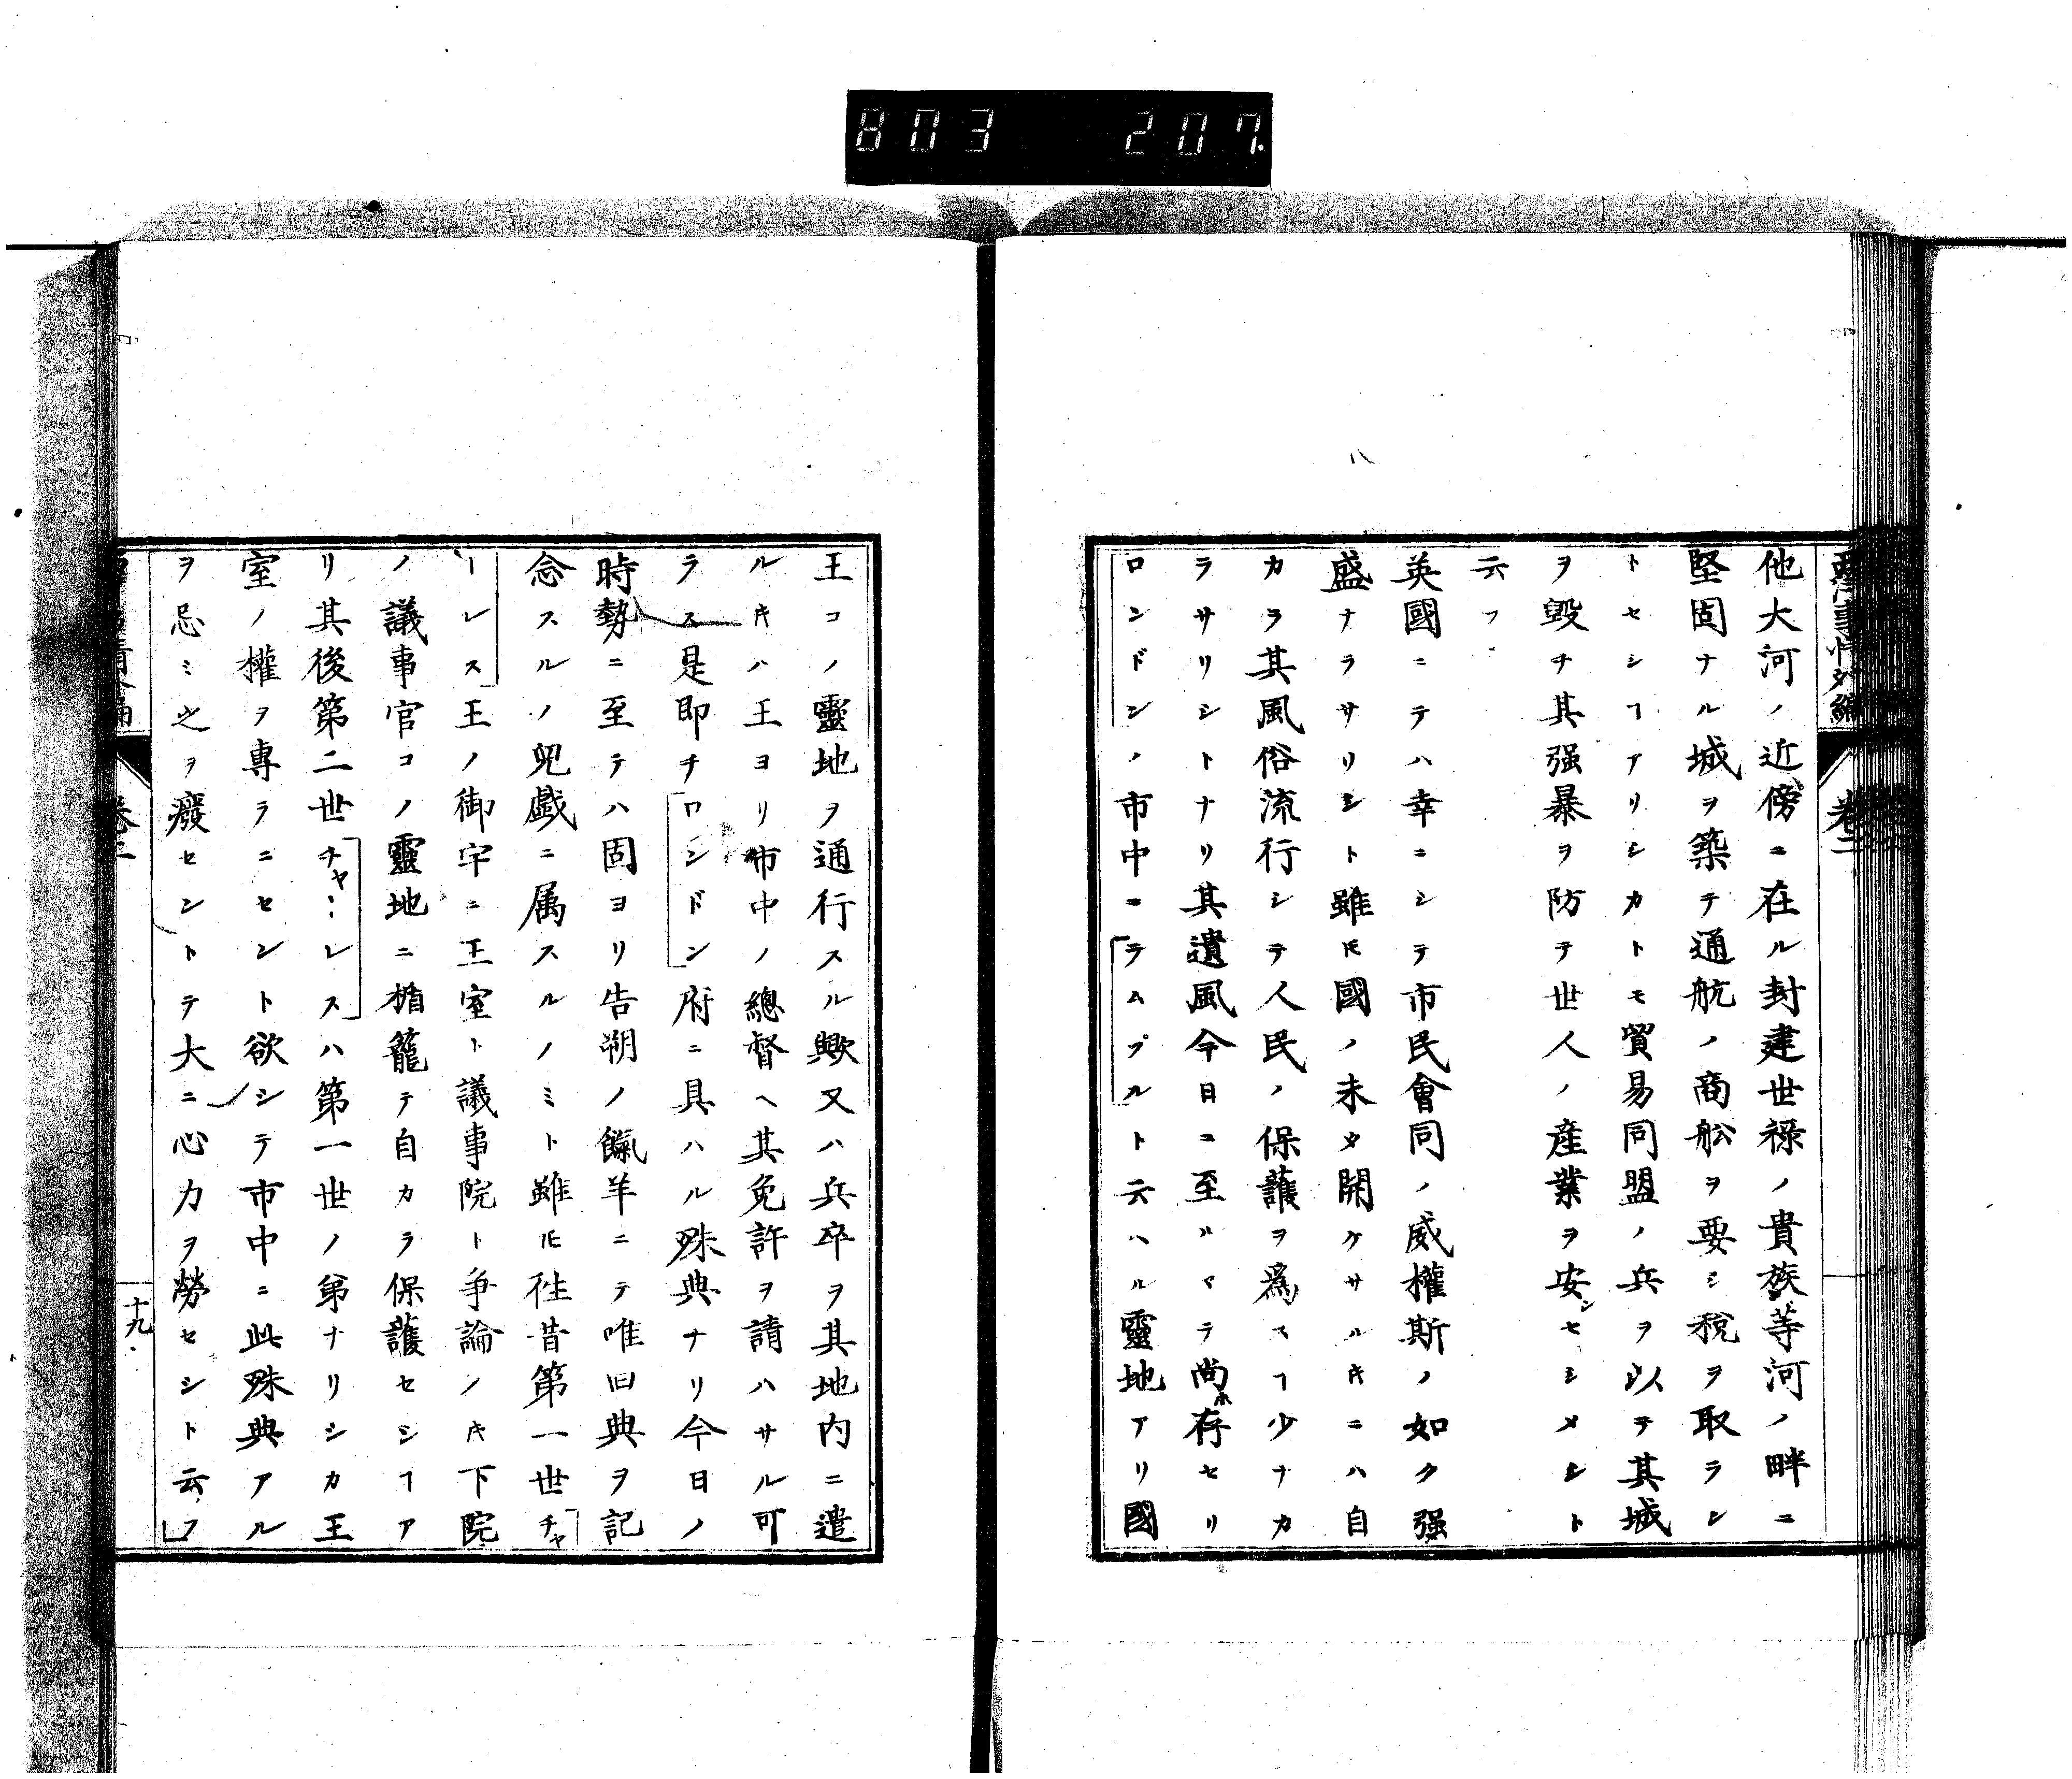 803 207.
西洋事情外編 卷二
他大河ノ近傍ニ在ル封建世祿ノ貴族等河ノ畔ニ
堅固ナル城ヲ築テ通航ノ商舩ヲ要シ稅ヲ取ラン
トセシヿアリシカトモ貿易同盟ノ兵ヲ以テ其城
ヲ毀チ其强暴ヲ防テ世人ノ産業ヲ安ンセシメシト
云フ
英國ニテハ幸ニシテ市民會同ノ威權斯ノ如ク强
盛ナラサリシト雖𪜈國ノ未タ開ケサルキニハ自
カラ其風俗流行シテ人民ノ保護ヲ爲スヿ少ナカ
ラサリシトナリ其遺風今日ニ至ルマテ尚ホ存セリ
ロンドンノ市中ニテムプルト云ハル靈地アリ國
王コノ靈地ヲ通行スル歟又ハ兵卒ヲ其地内ニ遣
ルキハ王ヨリ市中ノ總督ヘ其免許ヲ請ハサル可
ラス是即チロンドン府ニ具ハル殊典ナリ今日ノ
時勢ニ至テハ固ヨリ告朔ノ餼羊ニテ唯旧典ヲ記
念スルノ兒戯ニ属スルノミト雖𪜈徃昔第一世チャ
ーレス王ノ御宇ニ王室ト議事院ト爭論ノキ下院
ノ議事官コノ靈地ニ楯籠テ自カラ保護セシヿア
リ其後第二世チャーレスハ第一世ノ弟ナリシカ王
室ノ權ヲ專ラニセント欲シテ市中ニ此殊典アル
ヲ忌ミ之ヲ癈セントテ大ニ心力ヲ勞セシト云フ
卷二
十九